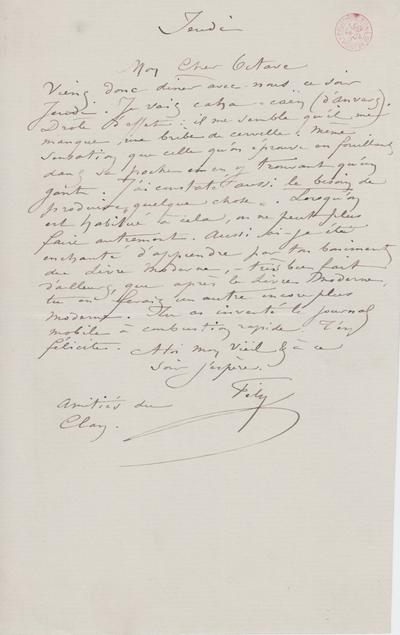 Jeudi
Mon Cher Octave
Viens donc diner avec nous ce soir
Jeudi. Je vais caha-caën (d'Anvers).
Drôle d'effet: il me semble qu'il me
manque une bribe de cervelle: même
sensation que celle qu'on éprouve en fouillant
dans sa poche en en y trouvant qu'un
J'ai constaté aussi le besoin de
produire quelque chose. Lorsqu'on
est habitué à cela, on ne peut plus
faire autrement. Aussi ai-je été
enchanté d'apprendre par ton
du Livre Moderne, - très bien fait
d'ailleurs, que après le Livre Moderne,
tu en ferais un autre encore plus
moderne. Tu as inventé le journal
mobile à combustion rapide. T'en
félicite. A toi mon vieil & à ce
soir j'espère.
Fély
Amitiés du
Clan.